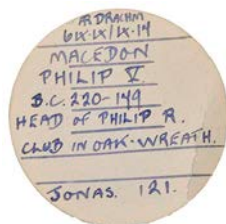 AR DRACHM
MACEDON
PHILIP V.
B.C. 220-179
HEAD OF PHILIP R.
CLUB IN OAK-WREATH.
JONAS. 121.